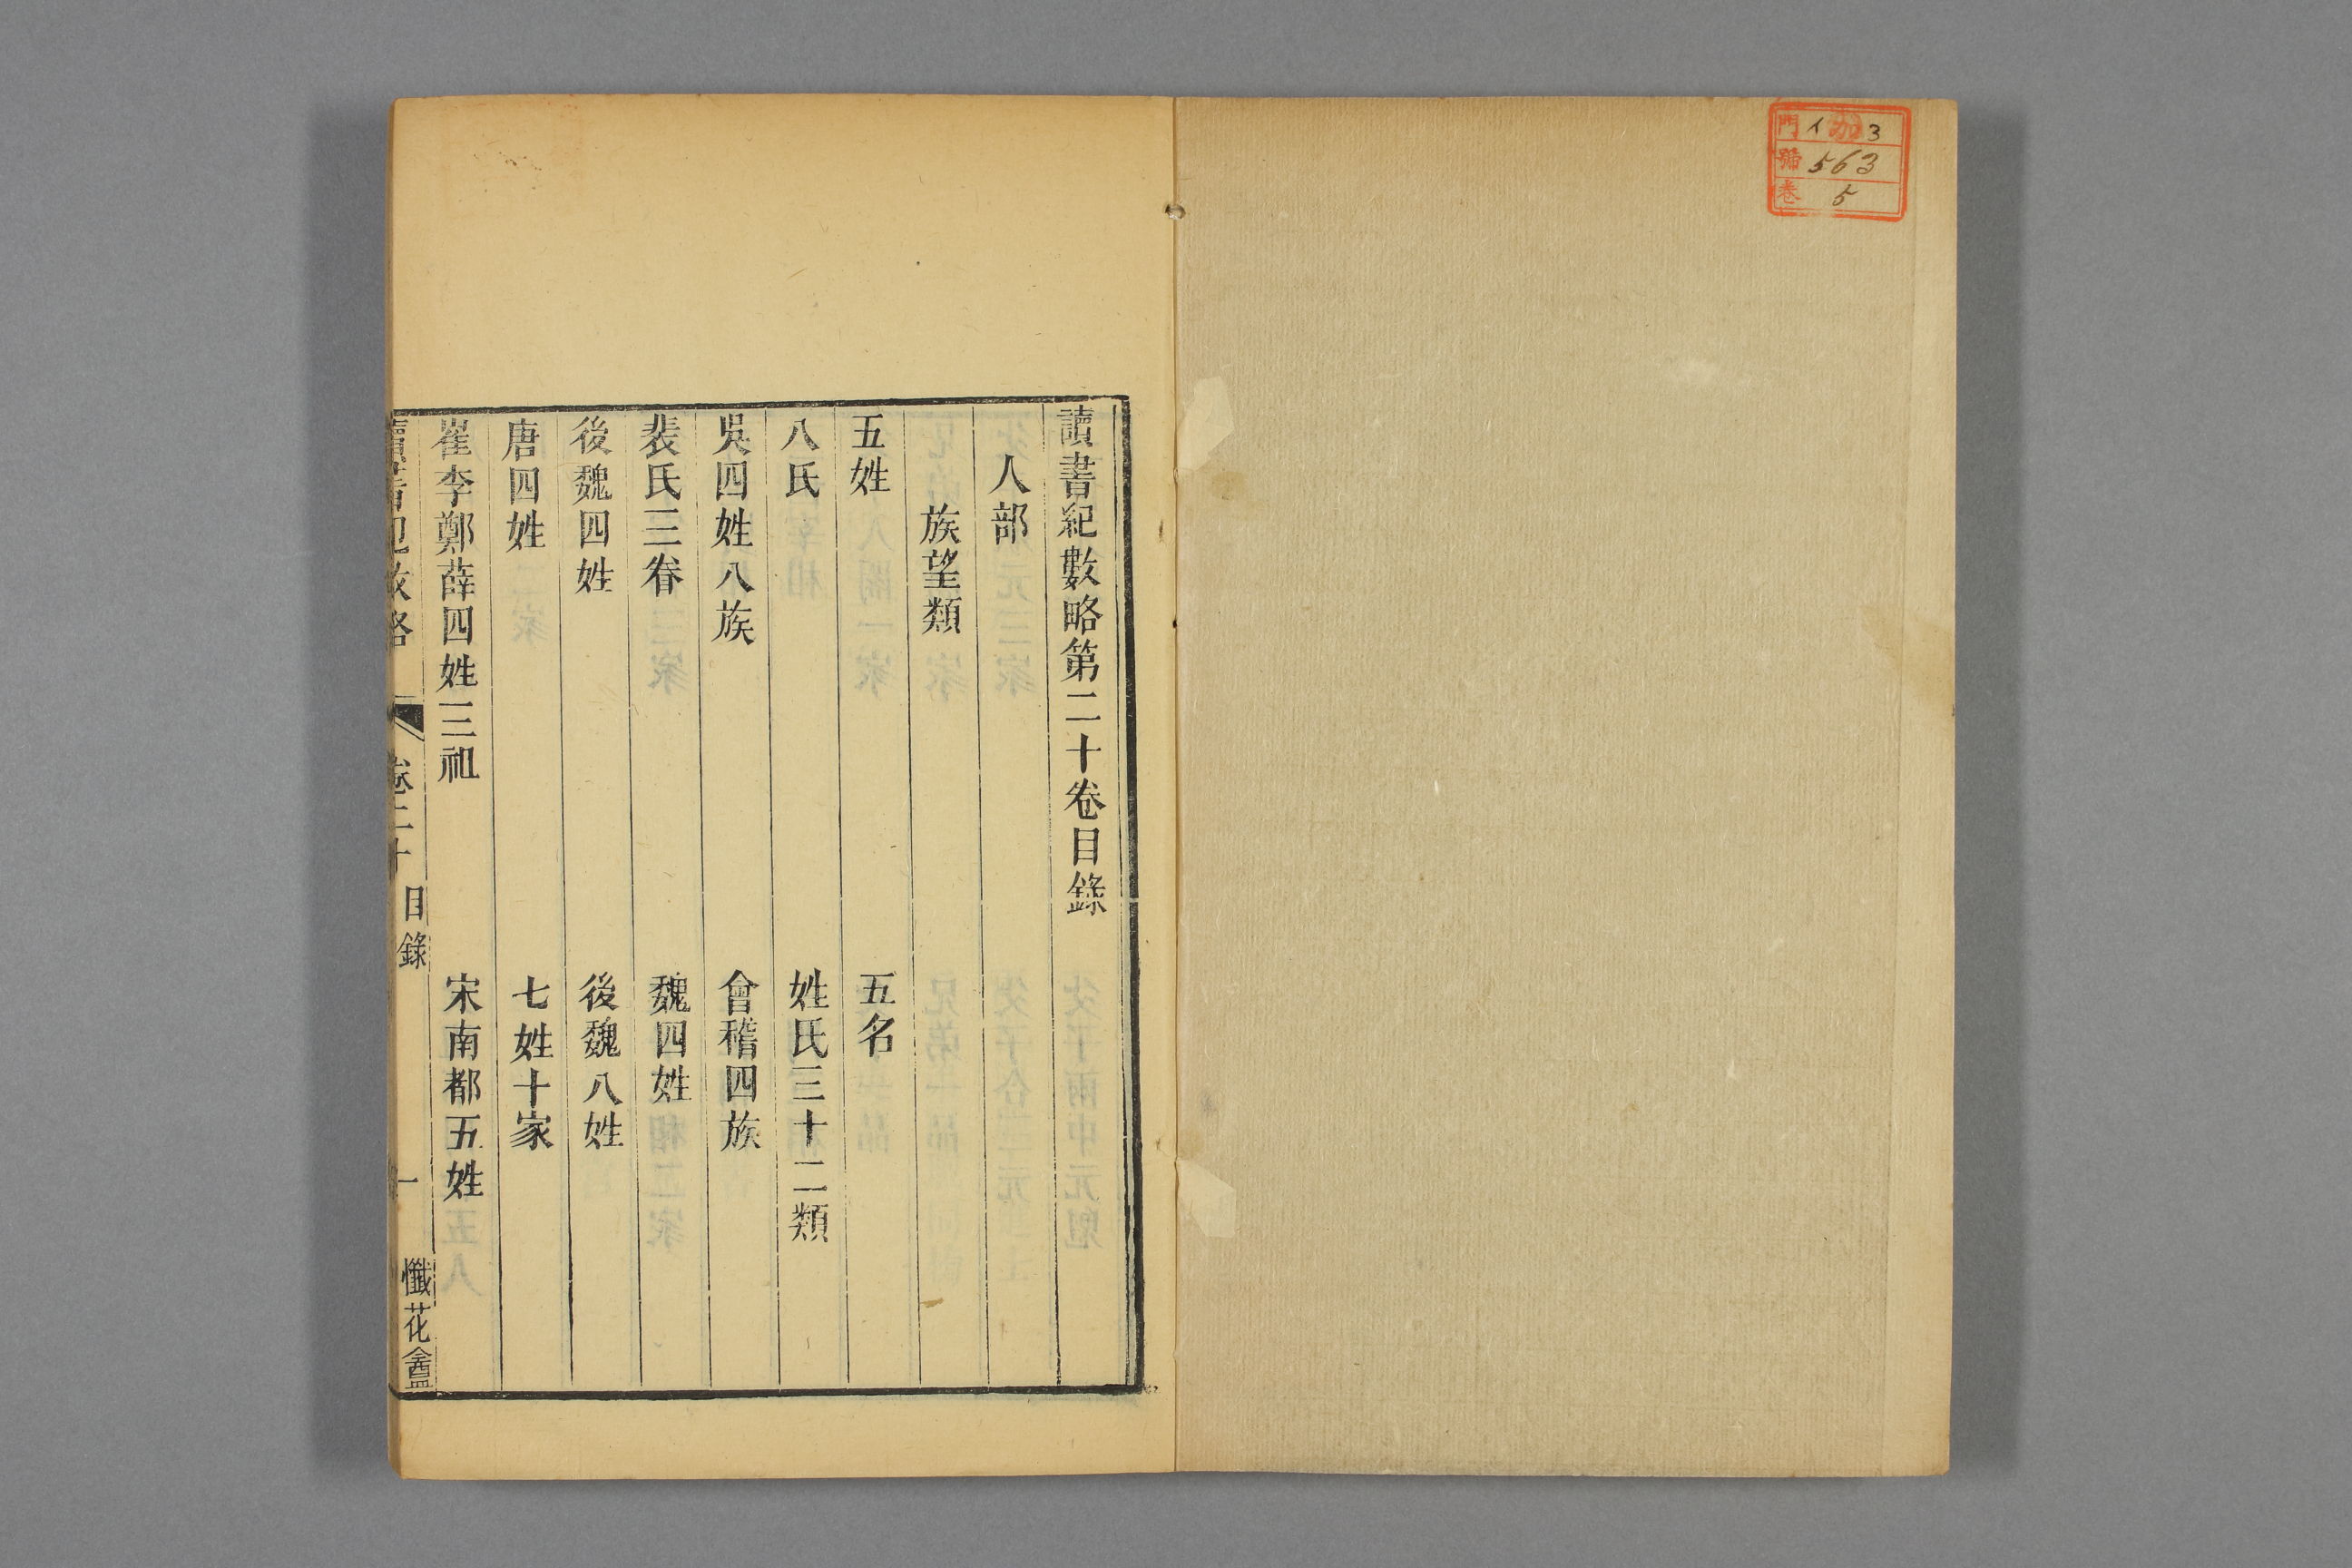 門 イ 加 3
號 563
卷 5
讀書紀數略第二十卷目錄
人部
族望類
五姓 五名
八氏 姓氏三十二類
吳四姓八族 會稽四族
裴氏三眷 魏四姓
後魏四姓 後魏八姓
唐四姓 七姓十家
崔李鄭薛四姓三祖 宋南都五姓
讀書紀數略 卷二十 目錄 一 懺花盦